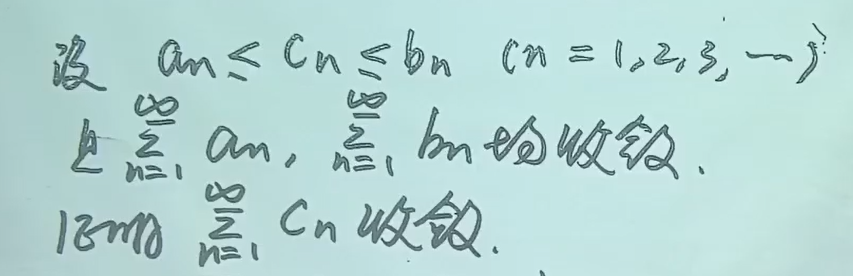 设 an ≤ Cn ≤ bn (n = 1, 2, 3, …)
且 ∑_{n=1}^{∞} an, ∑_{n=1}^{∞} bn 均收敛.
证明 ∑_{n=1}^{∞} Cn 收敛.